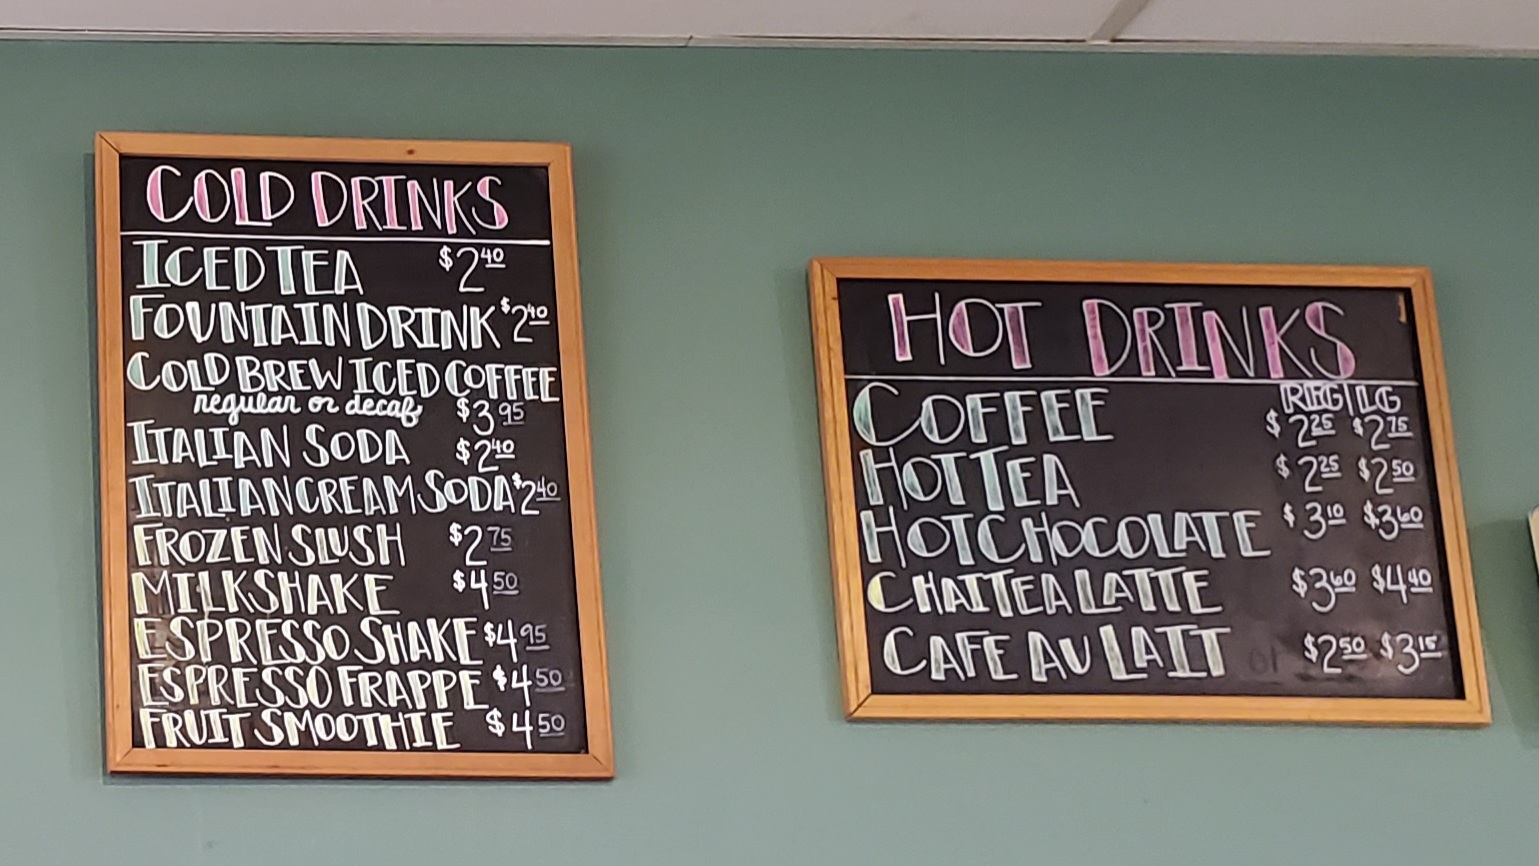 COLD DRINKS
ICED TEA $2.40
FOUNTAIN DRINK $2.40
COLD BREW ICED COFFEE
regular or decaf $3.95
ITALIAN SODA $2.40
ITALIAN CREAM SODA $2.40
FROZEN SLUSH $2.75
MILKSHAKE $4.50
ESPRESSO SHAKE $4.95
ESPRESSO FRAPPE $4.50
FRUIT SMOOTHIE $4.50
HOT DRINKS
REG | LG
COFFEE $2.25 $2.75
HOT TEA $2.25 $2.50
HOT CHOCOLATE $3.10 $3.60
CHAI TEA LATTE $3.60 $4.40
CAFE AU LAIT $2.50 $3.15